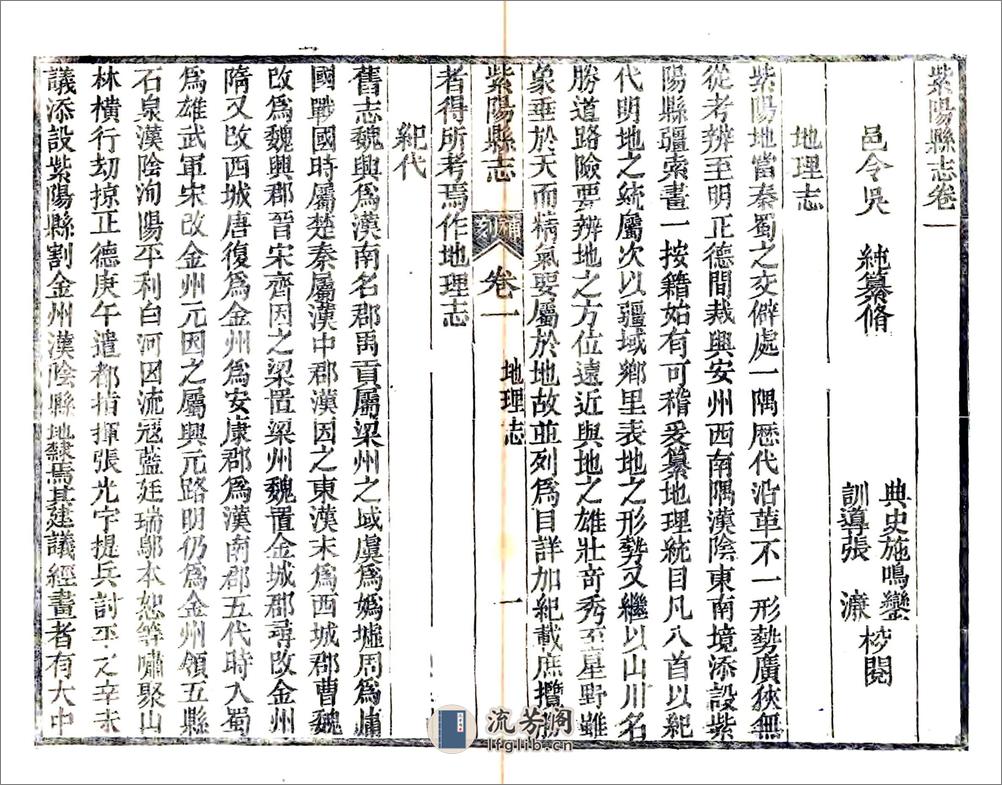 紫陽縣志卷一
邑令吳　純纂脩
典史施鳴鑾
訓導張　濂
校閱
地理志
紫陽地當秦蜀之交僻處一隅歷代沿革不一形勢廣狹無
從考辨至明正德間裁興安州西南隅漢陰東南境添設紫
陽縣疆索畫一按籍始有可稽爰纂地理統目凡八首以紀
代明地之統屬次以疆域鄉里表地之形勢又繼以山川名
勝道路險要辨地之方位遠近與地之雄壯奇秀至星野雖
象垂於天而精氣要屬於地故並列為目詳加紀載庶攬勝
者得所考焉作地理志
紫陽縣志
卷一
地理志
一
紀代
舊志魏興為漢南名郡禹貢屬梁州之域虞為媯墟周為庸
國戰國時屬楚秦屬漢中郡漢因之東漢末為西城郡曹魏
改為魏興郡晉宋齊因之梁置梁州魏置金城郡尋改金州
隋又改西城唐復為金州為安康郡為漢南郡五代時入蜀
為雄武軍宋改金州元因之屬興元路明仍為金州領五縣
石泉漢陰洵陽平利白河因流寇藍廷瑞鄔本恕等嘯聚山
林橫行劫掠正德庚午遣都指揮張光宇提兵討平之辛未
議添設紫陽縣割金州漢陰縣地隸焉其建議經畫者有大中
流芳阁
lfglib.cn